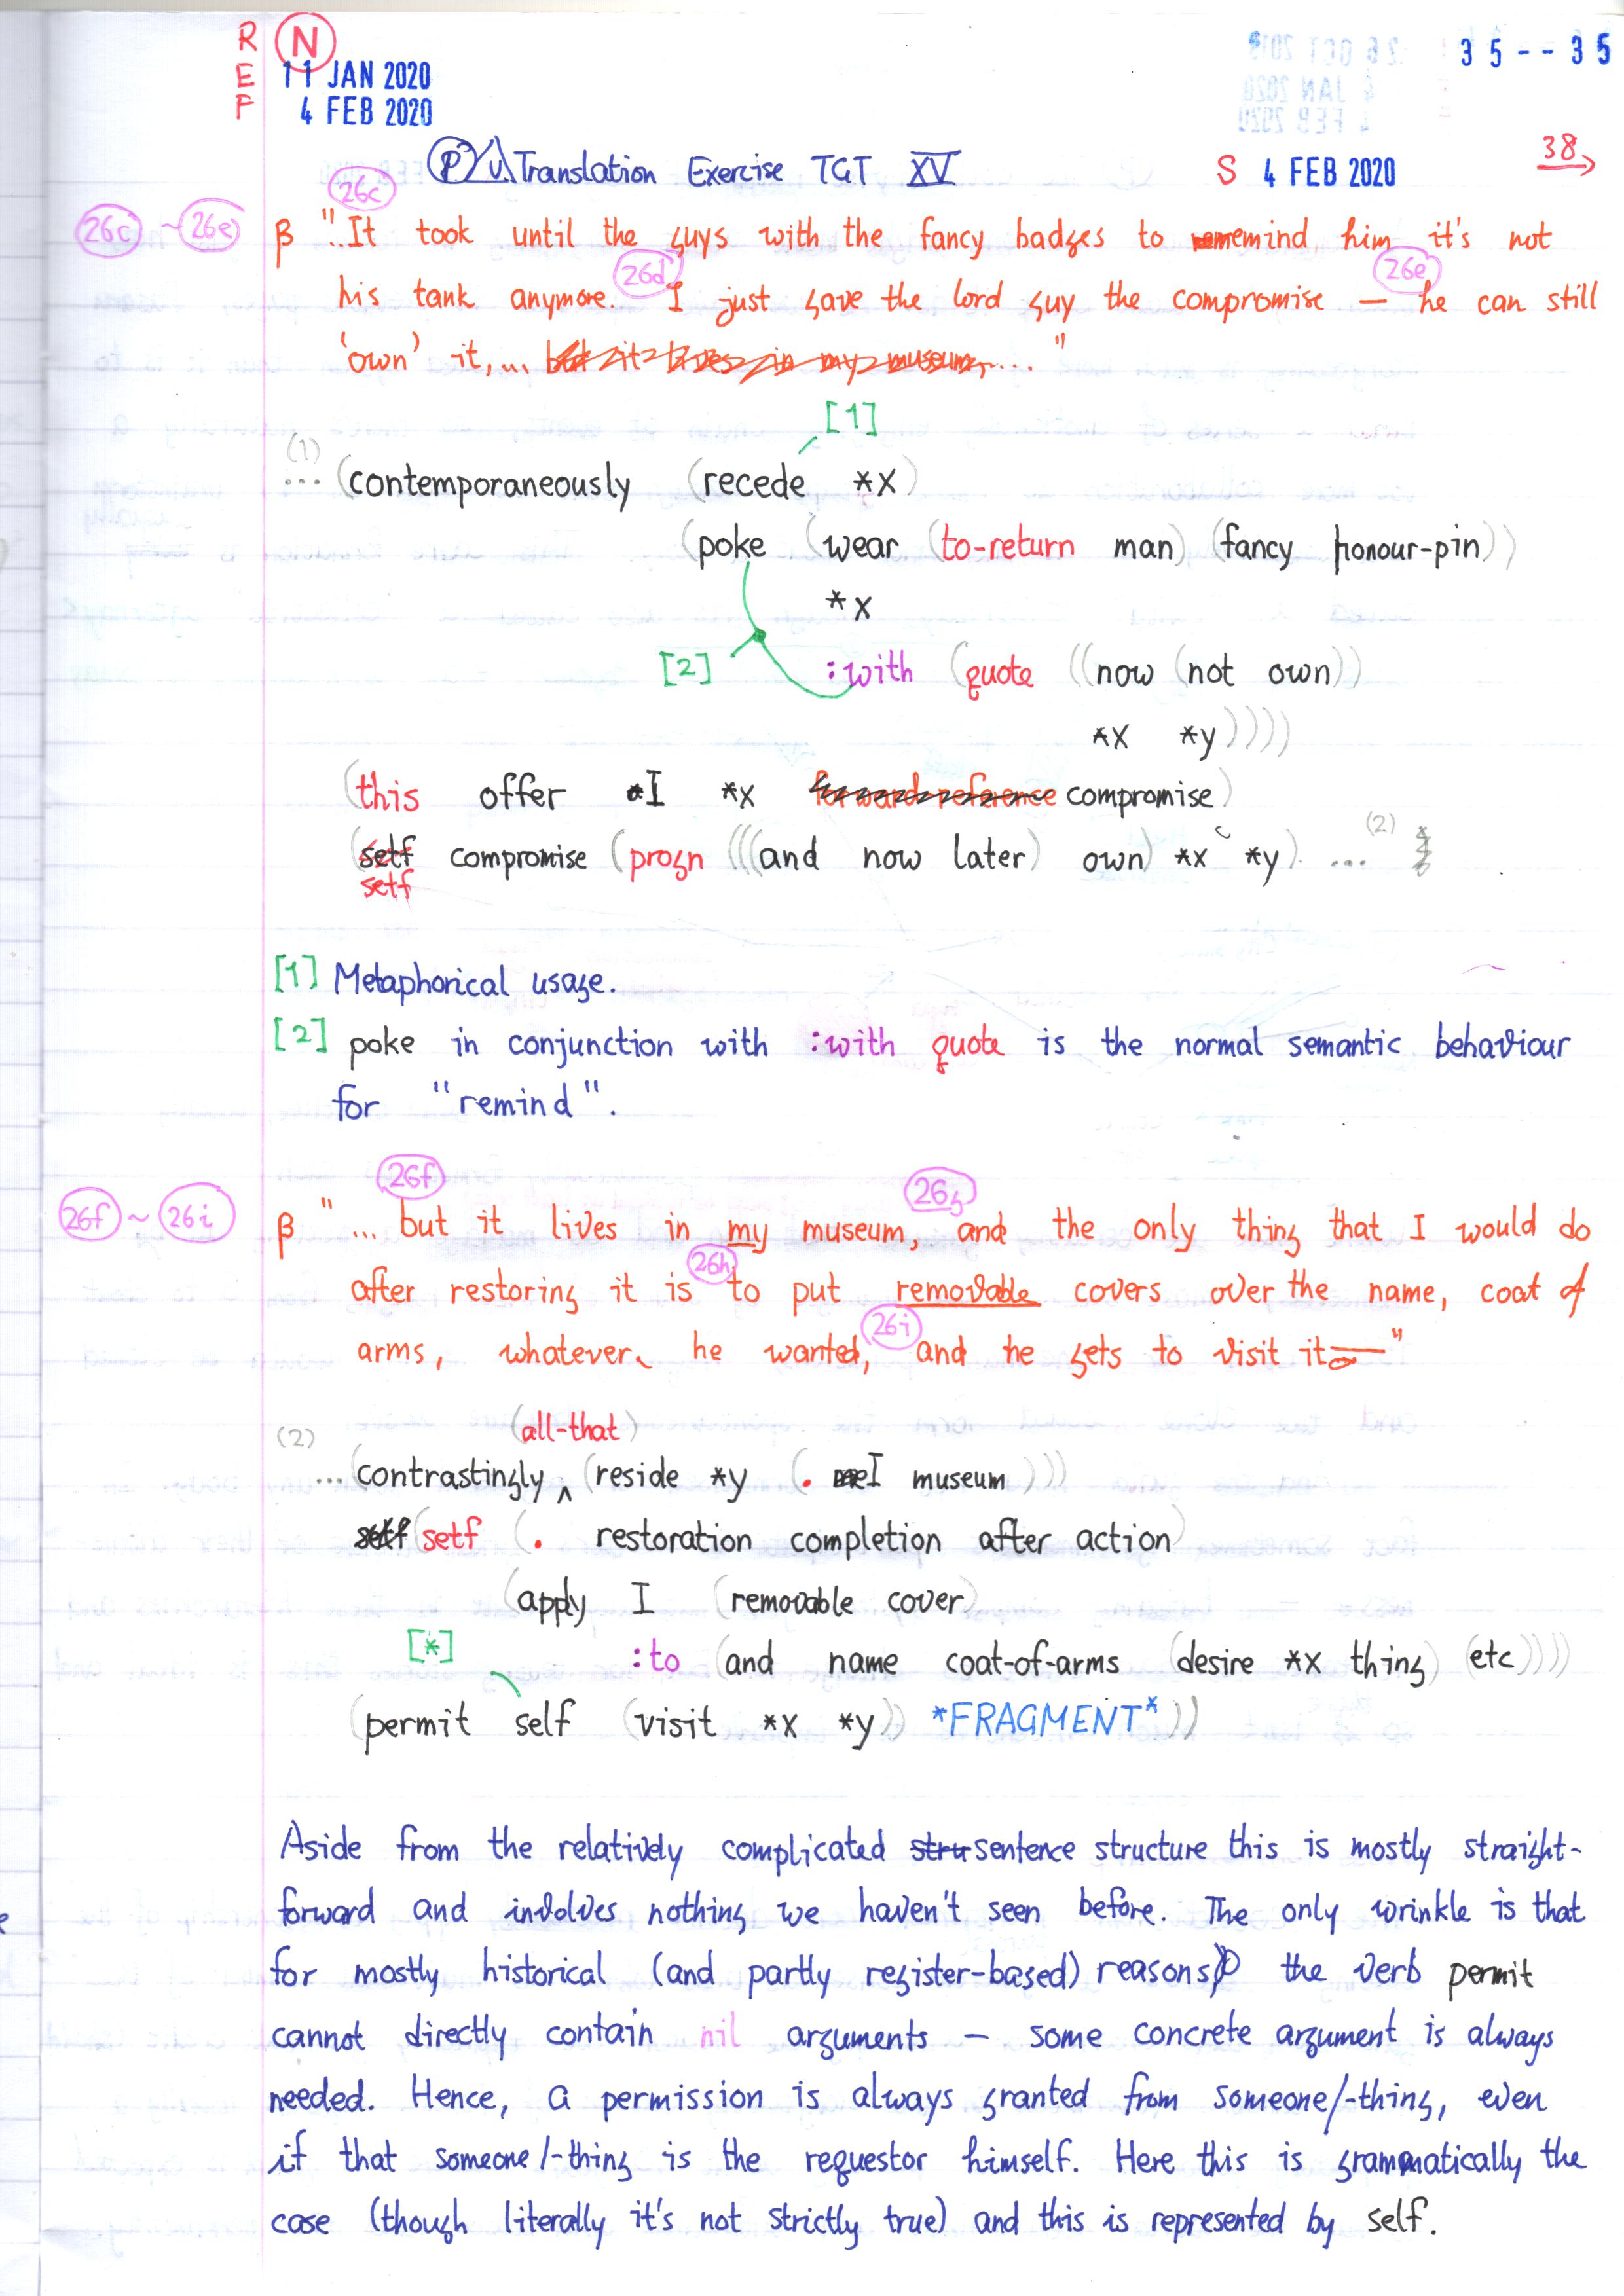 R
E
F
N
11 JAN 2020
4 FEB 2020
35--35
38
Translation Exercise TGT XV
S 4 FEB 2020
26c ~ 26e
26c
β "...It took until the guys with the fancy badges to remind him it's not
26d
26e
his tank anymore. I just gave the lord guy the compromise — he can still
'own' it,... but it lives in my museum,..."
[1]
(1)
... (contemporaneously (recede *x)
(poke (wear (to-return man) (fancy honour-pin))
*x
[2] :with (quote ((now (not own))
*x *y))))
(this offer *I *x forward-reference compromise)
(setf compromise (progn (((and now later) own) *x *y). ... (2)
setf
[1] Metaphorical usage.
[2] poke in conjunction with :with quote is the normal semantic behaviour
for "remind".
26f ~ 26i
26f
26g
β "... but it lives in my museum, and the only thing that I would do
26h
after restoring it is to put removable covers over the name, coat of
26i
arms, whatever he wanted, and he gets to visit it—"
(all-that)
(2)
...(contrastingly ^ (reside *y (. I museum)))
setf (setf (. restoration completion after action)
(apply I (removable cover)
[*] :to (and name coat-of-arms (desire *x thing) (etc))))
(permit self (visit *x *y)) *FRAGMENT*))
Aside from the relatively complicated stru sentence structure this is mostly straight-
forward and involves nothing we haven't seen before. The only wrinkle is that
for mostly historical (and partly register-based) reasons the verb permit
cannot directly contain nil arguments — some concrete argument is always
needed. Hence, a permission is always granted from someone/-thing, even
if that someone/-thing is the requestor himself. Here this is grammatically the
case (though literally it's not strictly true) and this is represented by self.